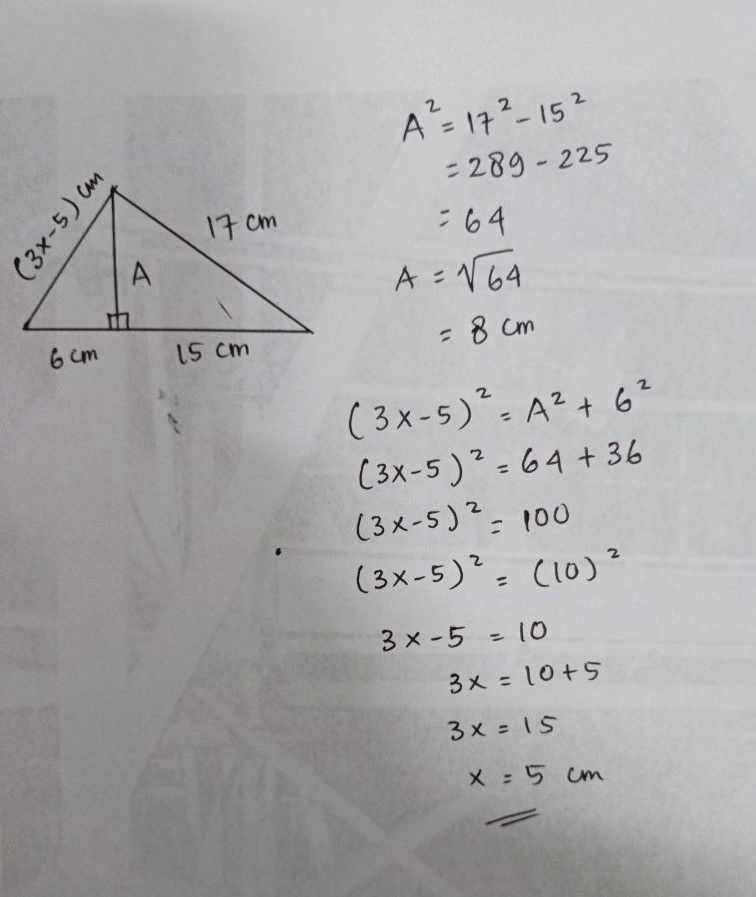 (3x-5) cm
17 cm
A
6 cm
15 cm
A² = 17² - 15²
= 289 - 225
= 64
A = √64
= 8 cm
(3x-5)² = A² + 6²
(3x-5)² = 64 + 36
(3x-5)² = 100
(3x-5)² = (10)²
3x-5 = 10
3x = 10+5
3x = 15
x = 5 cm